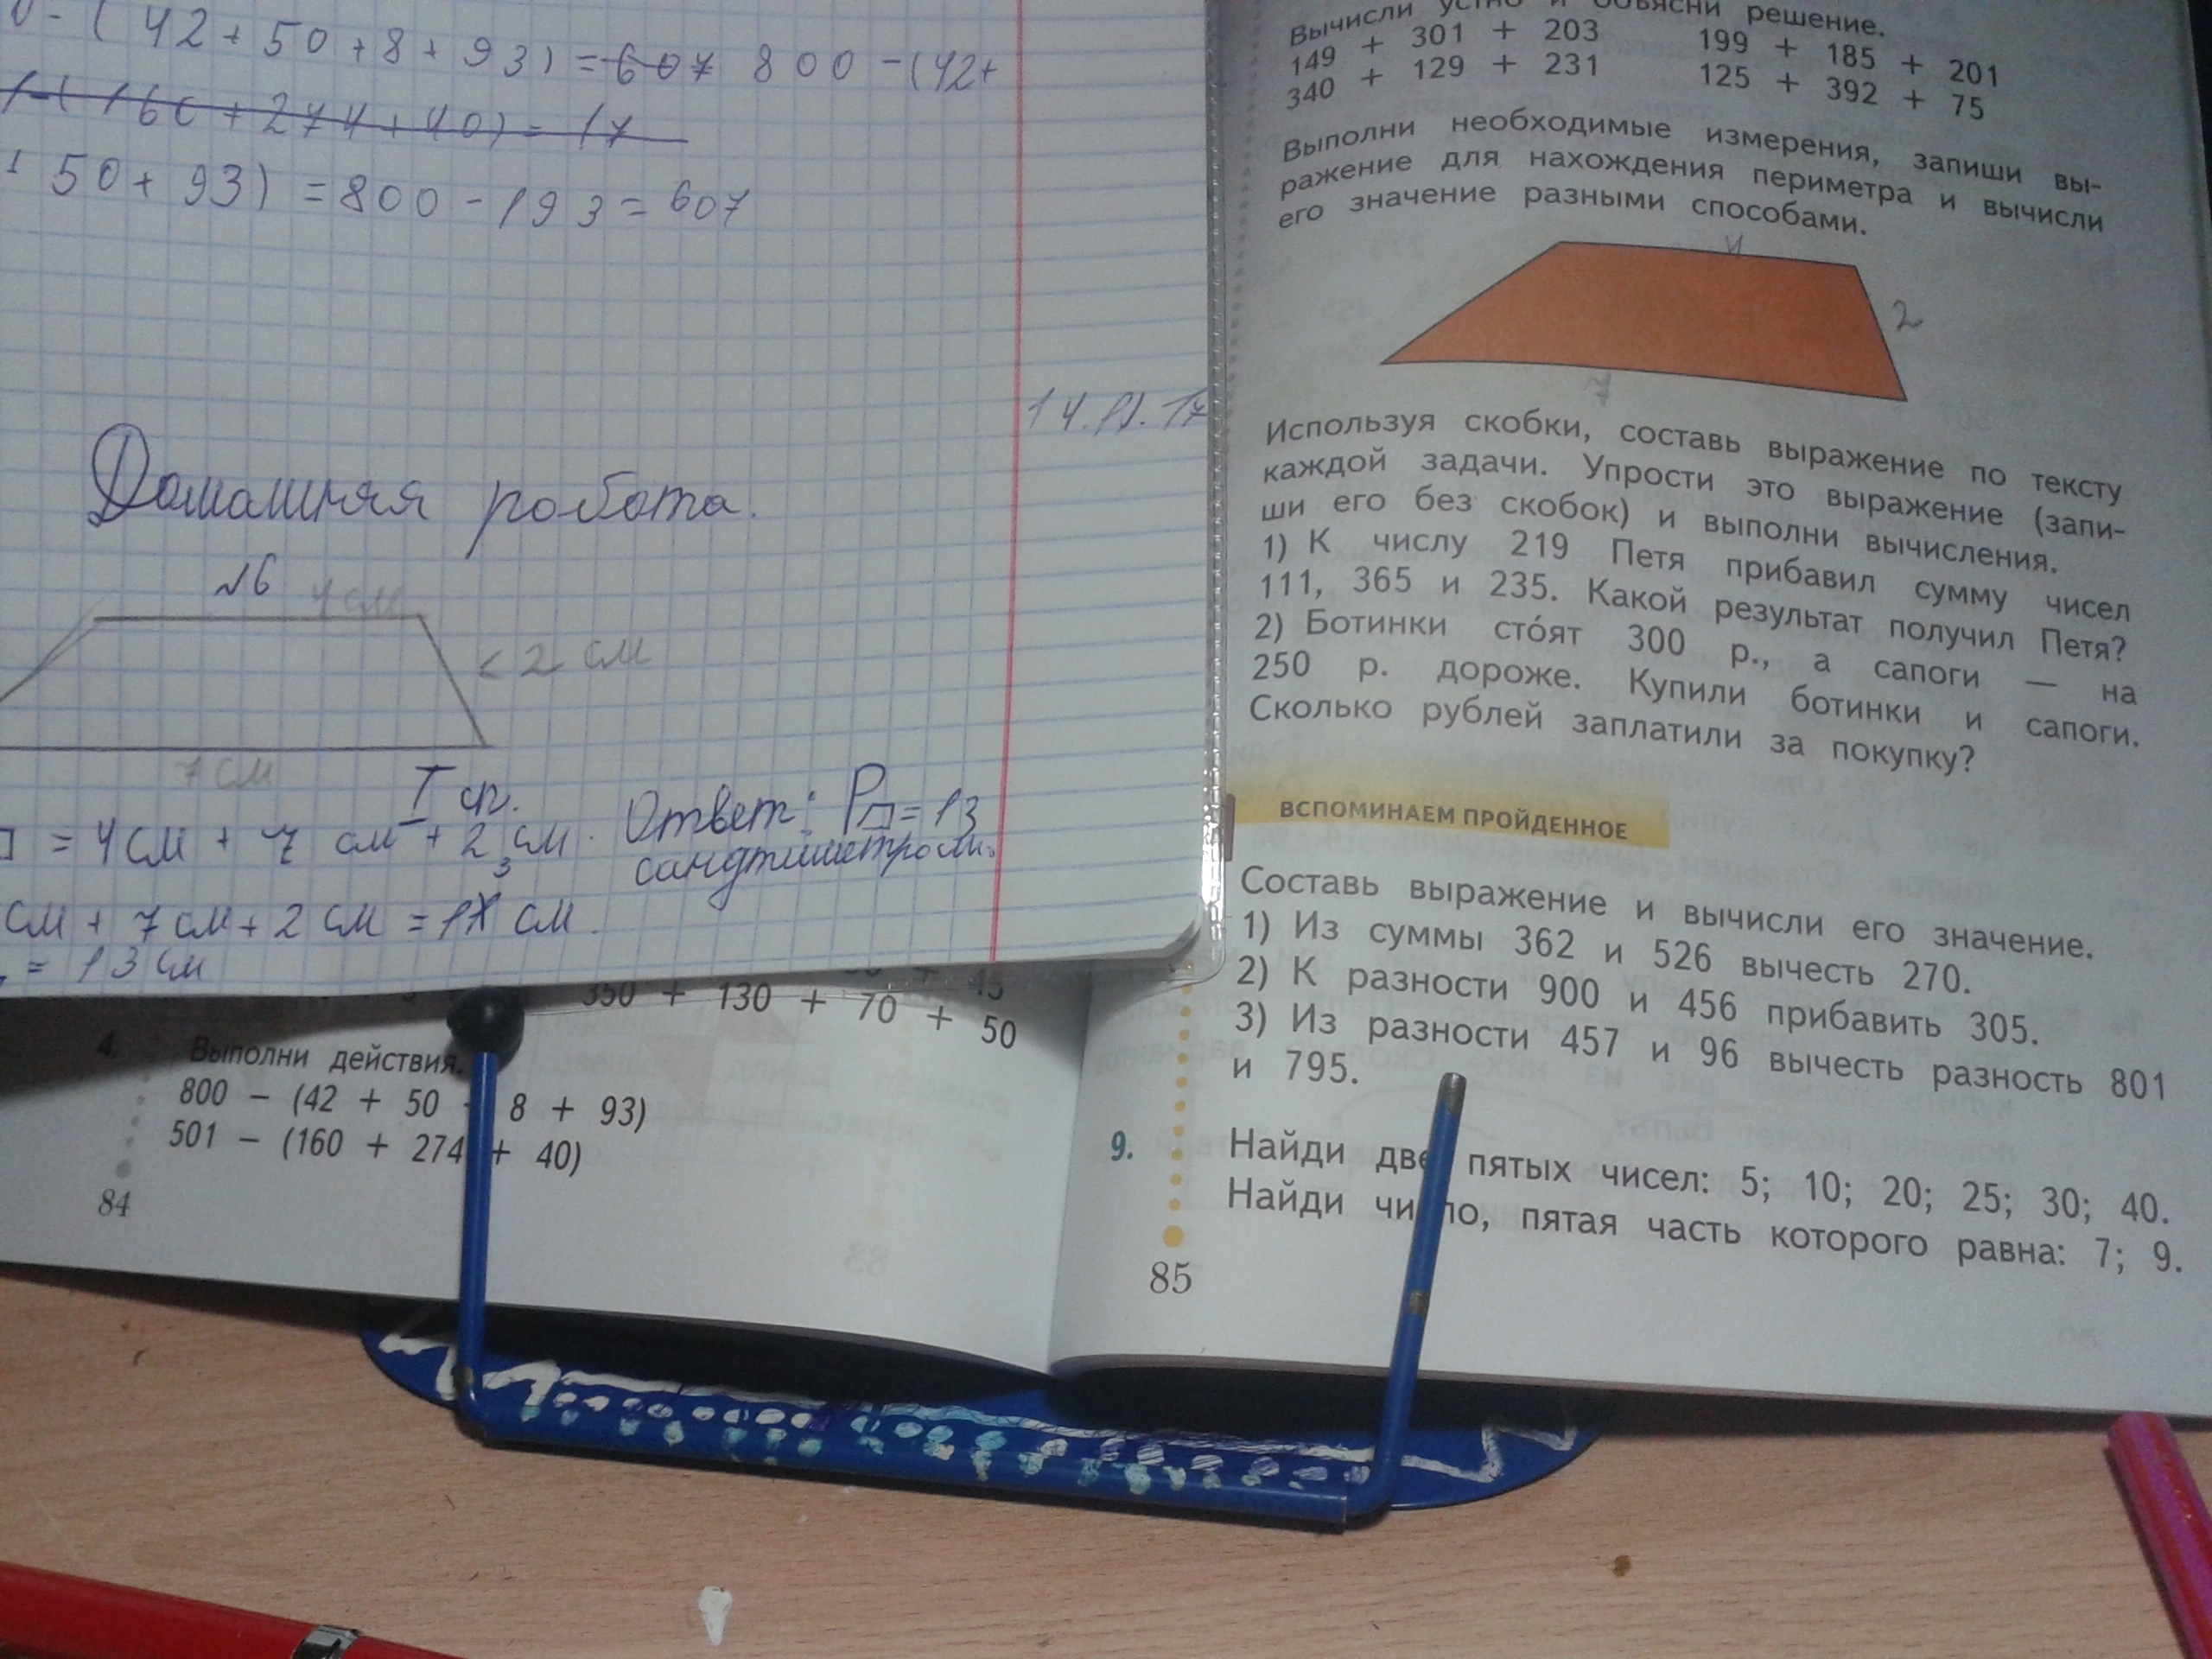 - ( 42 + 50 + 8 + 93) = 607 800 - (42+
- ( 160 + 274 + 40) = 17
50 + 93) = 800 - 193 = 607
Домашняя робота.
№6
4 см
2 см
7 см
I сп.
= 4 см + 7 см + 2 см. Ответ: P = 13
см + 7 см + 2 см = 1 см.
= 13 см
350 + 130 + 70 + 50
4. Выполни действия.
800 - (42 + 50 + 8 + 93)
501 - (160 + 274 + 40)
84
Вычисли устно и объясни решение.
149 + 301 + 203 199 + 185 + 201
340 + 129 + 231 125 + 392 + 75
Выполни необходимые измерения, запиши вы-
ражение для нахождения периметра и вычисли
его значение разными способами.
4
2
7
Используя скобки, составь выражение по тексту
каждой задачи. Упрости это выражение (запи-
ши его без скобок) и выполни вычисления.
1) К числу 219 Петя прибавил сумму чисел
111, 365 и 235. Какой результат получил Петя?
2) Ботинки сто́ят 300 р., а сапоги — на
250 р. дороже. Купили ботинки и сапоги.
Сколько рублей заплатили за покупку?
ВСПОМИНАЕМ ПРОЙДЕННОЕ
Составь выражение и вычисли его значение.
1) Из суммы 362 и 526 вычесть 270.
2) К разности 900 и 456 прибавить 305.
3) Из разности 457 и 96 вычесть разность 801
и 795.
9. Найди две пятых чисел: 5; 10; 20; 25; 30; 40.
Найди число, пятая часть которого равна: 7; 9.
85